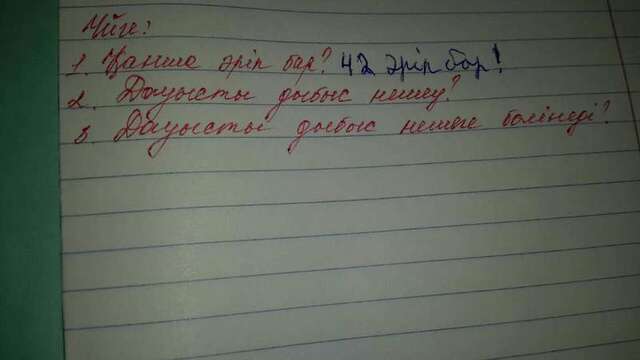 Үйге:
1. Қанша әріп бар? 42 әріп бар!
2. Дауысты дыбыс нешеу?
3. Дауысты дыбыс нешеге бөлінеді?